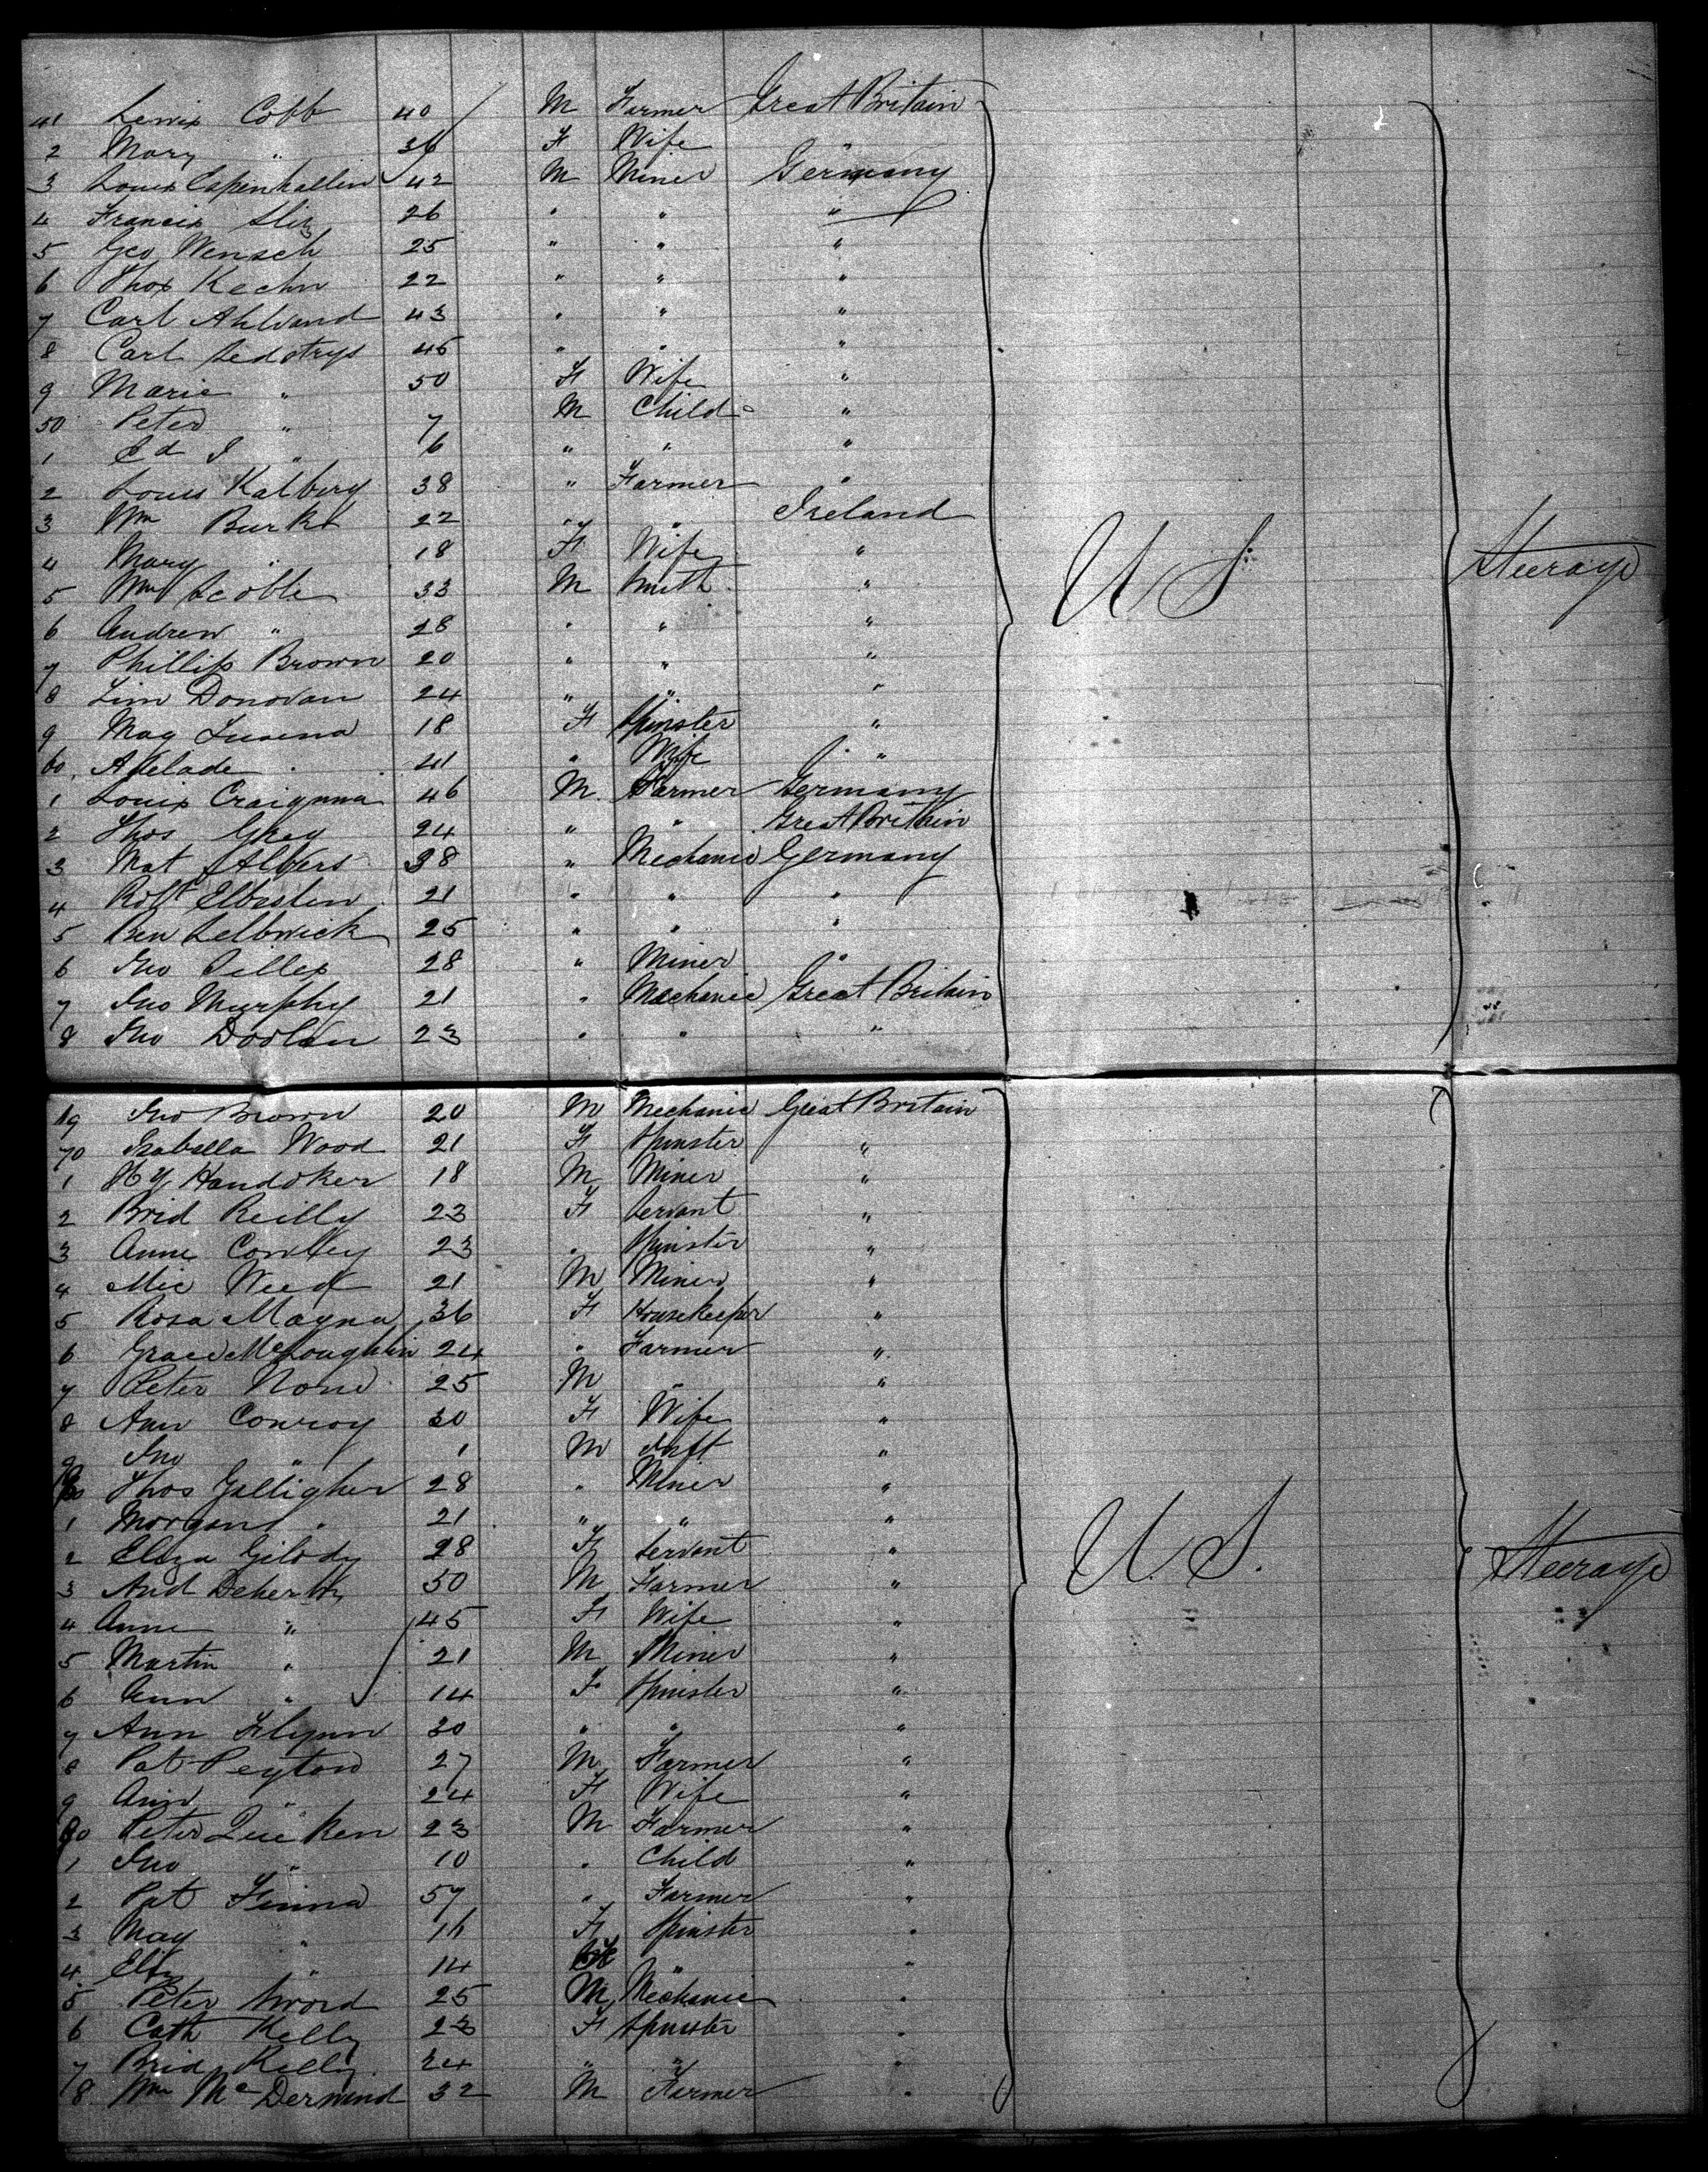 41 Lewis Cobb 40 M Farmer Great Britain
2 Mary " 36 F Wife "
3 Louis Espenhallen 42 M Miner Germany
4 Francis 26 " " "
5 Geo Wensch 25 " " "
6 Thos Kechn 22 " " "
7 Carl Ahlvand 43 " " "
8 Carl Sedstrys 45 " " "
9 Marie " 50 F Wife "
50 Peter " 7 M Child "
1 Ed J " 6 " " "
2 Louis Kalberg 38 " Farmer "
3 Wm Burke 22 " " Ireland
4 Mary " 18 F Wife "
5 Wm Scoble 33 M Smith "
6 Andrew " 28 " " "
7 Phillip Brown 20 " " "
8 Tim Donovan 24 " " "
9 Mag 18 F Spinster "
60 Adelade " 41 " Wife "
1 Louis 46 M Farmer Germany
2 Thos Grey 24 " " Great Britain
3 Mat Albers 38 " Mechanic Germany
4 Robt Elbeslen 21 " " "
5 Ben Selbwick 25 " " "
6 Jno 28 " Miner "
7 Jno Murphy 21 " Mechanic Great Britain
8 Jno Doolan 23 " " "
U S
Steerage
69 Jno Brown 20 M Mechanic Great Britain
70 Isabella Wood 21 F Spinster "
1 Hy Handoker 18 M Miner "
2 Brid Reilly 23 F Servant "
3 Anne Conlley 23 " Spinster "
4 Mic Weed 21 M Miner "
5 Rosa Magna 36 F Housekeeper "
6 Grace McLoughlin 24 " Farmer "
7 Peter None 25 M " "
8 Ann Conroy 30 F Wife "
9 Jno " 1 M Inft "
80 Thos Galligher 28 " Miner "
1 Morgan " 21 " " "
2 Eliza Gilody 28 F Servant "
3 And 50 M Farmer "
4 Anne " 45 F Wife "
5 Martin " 21 M Miner "
6 Ann " 14 F Spinster "
7 Ann Flynn 30 " " "
8 Pat Peyton 27 M Farmer "
9 Ann " 24 F Wife "
90 Peter Quicken 23 M Farmer "
1 Jno " 10 " Child "
2 Pat Finna 57 " Farmer "
3 May " 16 F Spinster "
4 Eliz " 14 " "
5 Peter Sword 25 M Mechanic "
6 Cath Kelly 23 F Spinster "
7 Brid Kelly 24 " " "
8 Wm McDermind 32 M Farmer "
U. S.
Steerage